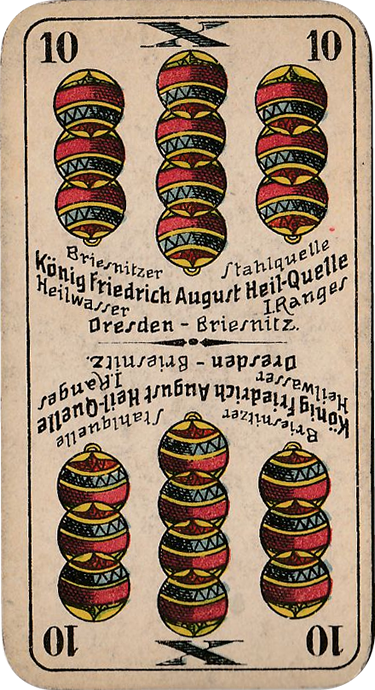 X
10 10
Briesnitzer Stahlquelle
König Friedrich August Heil-Quelle
Heilwasser I. Ranges
Dresden - Briesnitz.
Dresden - Briesnitz.
Heilwasser I. Ranges
König Friedrich August Heil-Quelle
Briesnitzer Stahlquelle
10 10
X